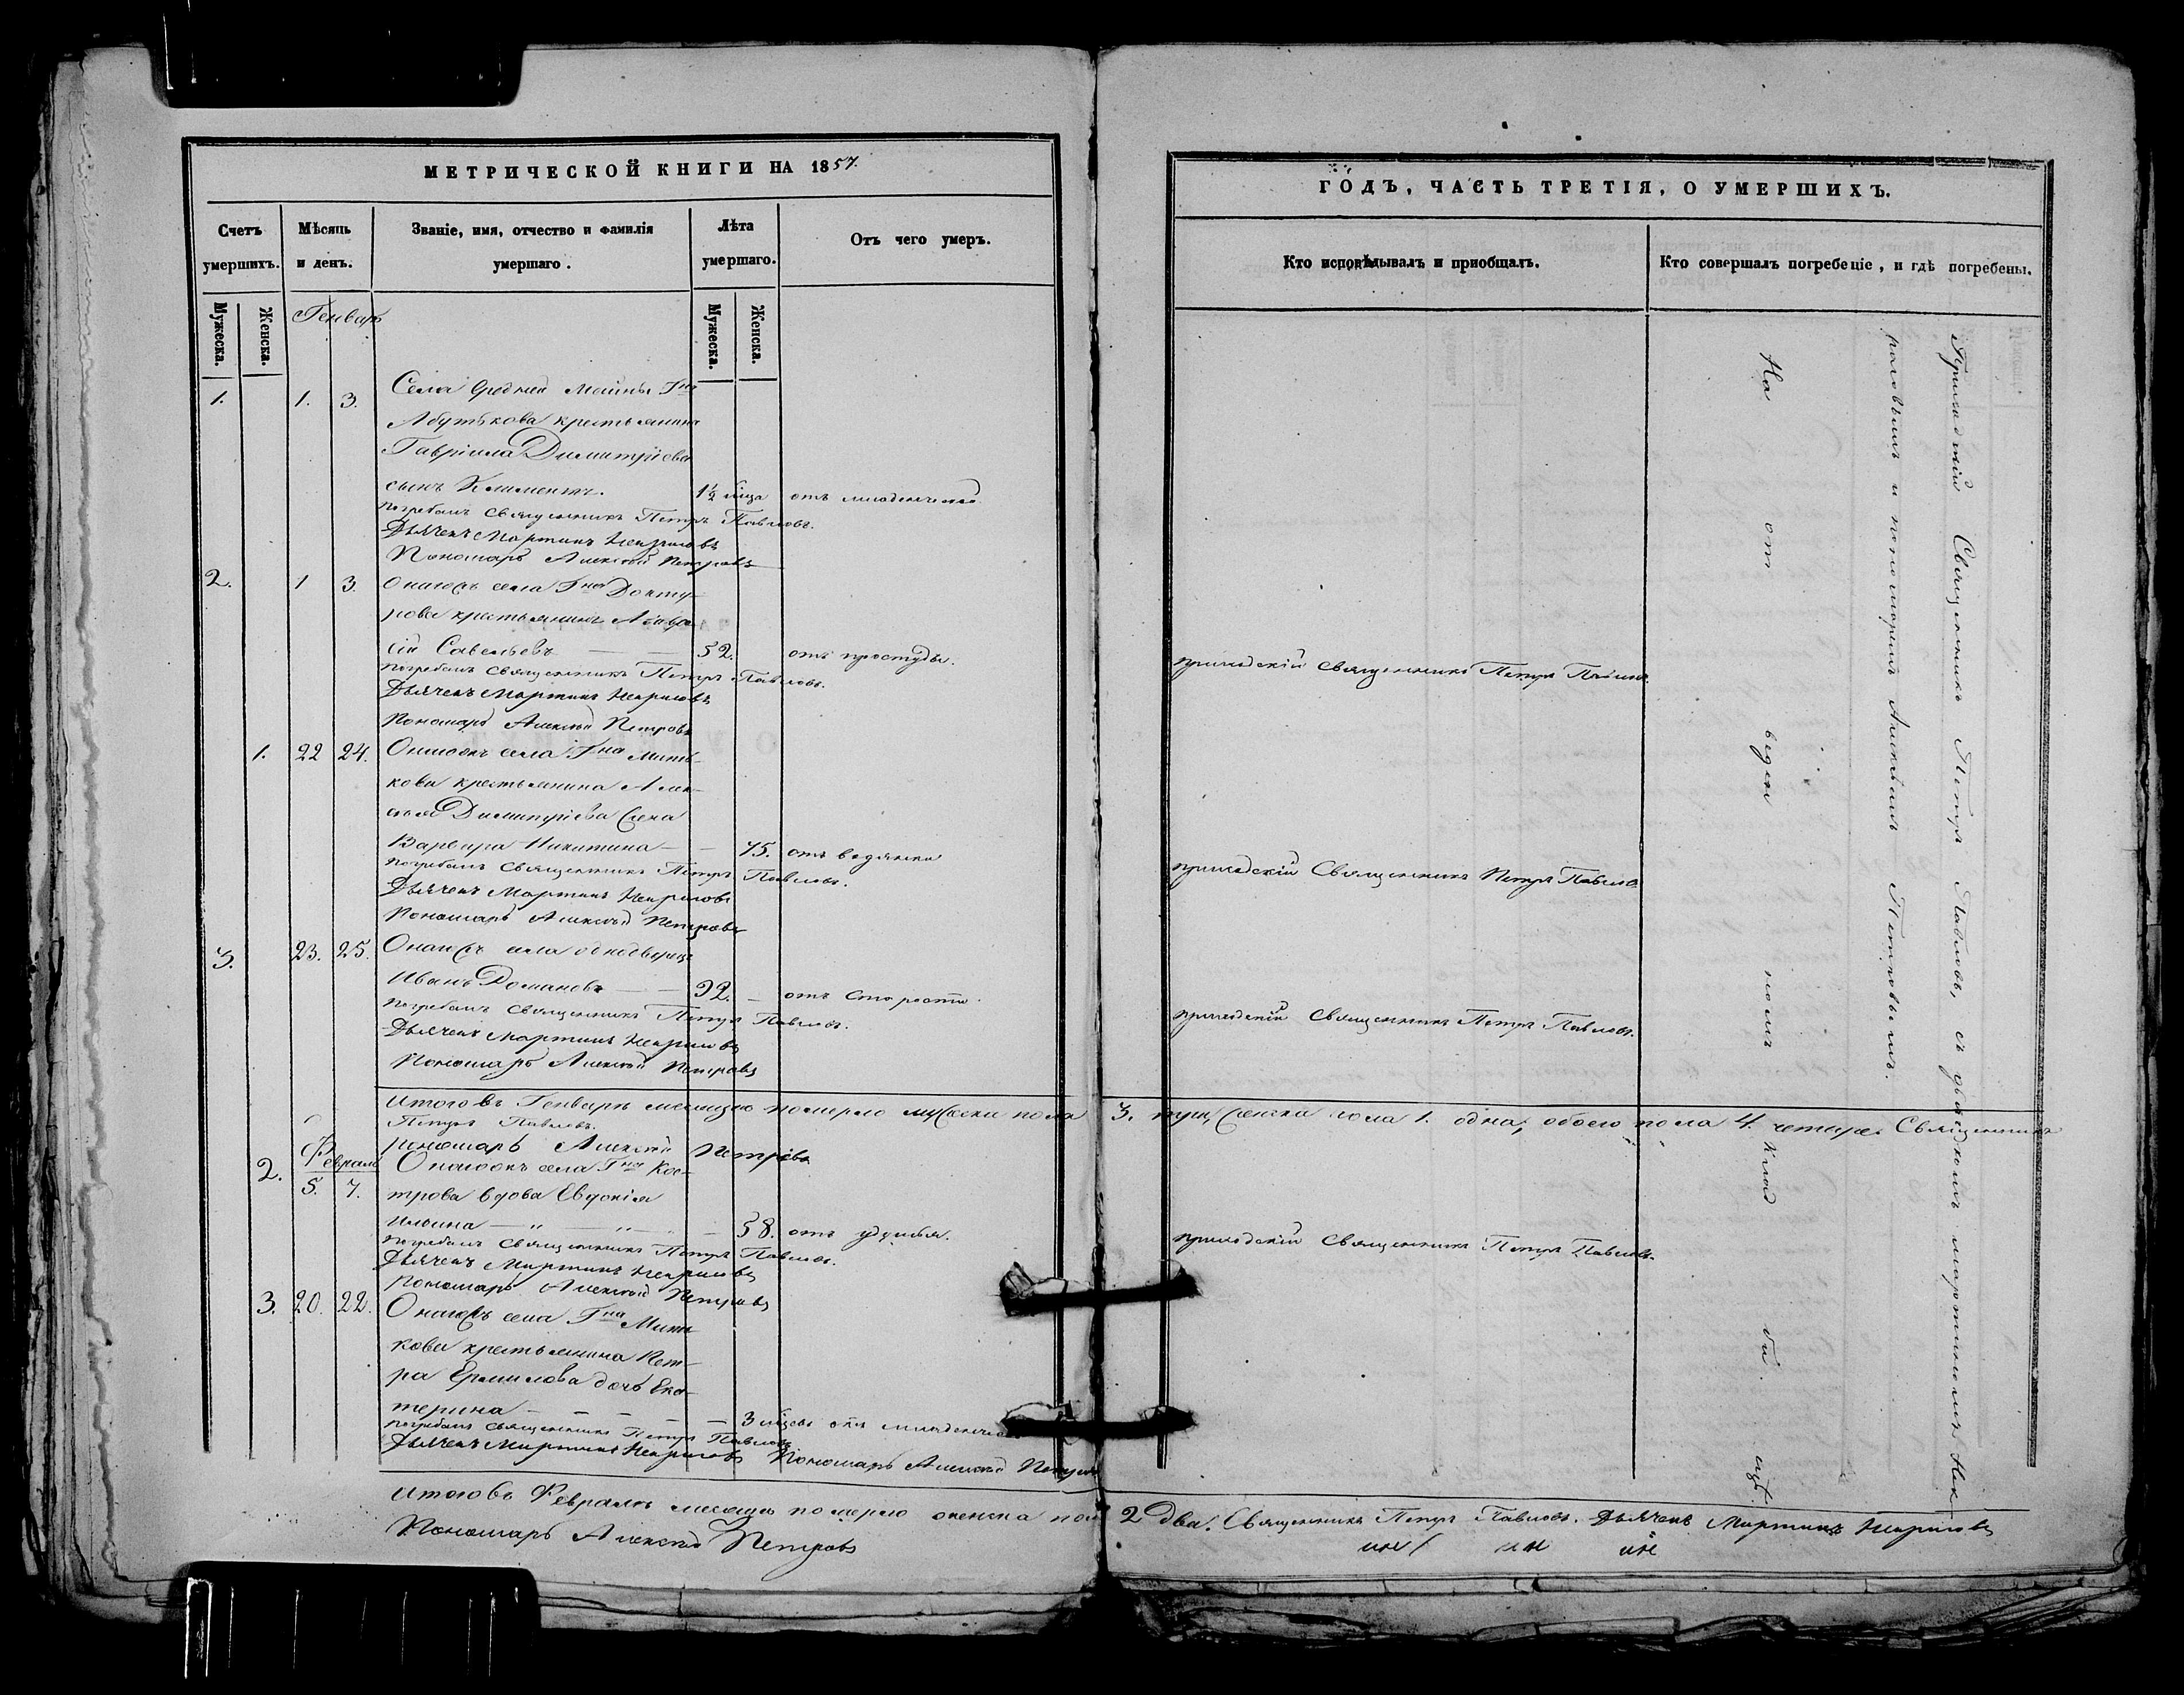 МЕТРИЧЕСКОЙ КНИГИ НА 1857.
Счетъ умершихъ.
Мѣсяцъ и день.
Званіе, имя, отчество и фамилія умершаго.
Лѣта умершаго.
Отъ чего умеръ.
Мужеска.
Женска.
Генварь
Мужеска.
Женска.
1. 1. 3. Села Средней Майны Гна
крестьянина
Гавріила Димитріева
сынъ Климентъ. 1½ отъ младенческой
Погребалъ Священникъ Петръ Павловъ.
Дьячекъ Мартинъ
Пономарь Алексѣй Петровъ
2. 1 3. Онагожъ села Гна Докту-
рова крестьянинъ
Савельевъ 52. отъ простуды.
Погребалъ Священникъ Петръ Павловъ.
Дьячекъ Мартинъ
Пономарь Алексѣй Петровъ
1. 22 24. села Гна Мить-
кова крестьянина Алек-
сѣя Димитріева жена
Варвара Никитина 75. отъ водянки
Погребалъ Священникъ Петръ Павловъ.
Дьячекъ Мартинъ
Пономарь Алексѣй Петровъ
3. 23. 25. Онагожъ села однодворецъ
Иванъ Романовъ 92. отъ старости.
Погребалъ Священникъ Петръ Павловъ.
Дьячекъ Мартинъ
Пономарь Алексѣй Петровъ
Итого въ Генварѣ месяцѣ померло мужеска пола
Петръ Павловъ.
Пономарь Алексѣй Петровъ
Февраль
2. 5. 7. села Гна Кос-
трова вдова Евдокія
Ильина 58. отъ удушья.
Погребалъ Священникъ Петръ Павловъ.
Дьячекъ Мартинъ
Пономарь Алексѣй Петровъ
3. 20. 22. Онагожъ села Гна Мить-
кова крестьянина Пет-
ра Ермилова дочь Ека-
терина 3 отъ
Погребалъ Священникъ Петръ Павловъ
Дьячекъ Мартинъ Пономарь Алексѣй Петровъ
Итого въ Февралѣ месяцѣ померло женска пола
Пономарь Алексѣй Петровъ
ГОДЪ, ЧАСТЬ ТРЕТІЯ, О УМЕРШИХЪ.
Кто исповѣдывалъ и пріобщалъ.
Кто совершалъ погребеніе, и гдѣ погребены.
приходскій Священникъ Петръ Павловъ.
приходскій Священникъ Петръ Павловъ.
приходскій Священникъ Петръ Павловъ.
3. три, женска пола 1. одна, обоего пола 4. четыре. Священникъ
приходскій Священникъ Петръ Павловъ.
Приходскій Священникъ Петръ Павловъ, съ дьячкомъ Мартиномъ
и пономаремъ Алексѣемъ Петровымъ.
На от веден номъ клад би щѣ.
2 два. Священникъ Петръ Павловъ. Дьячекъ Мартинъ